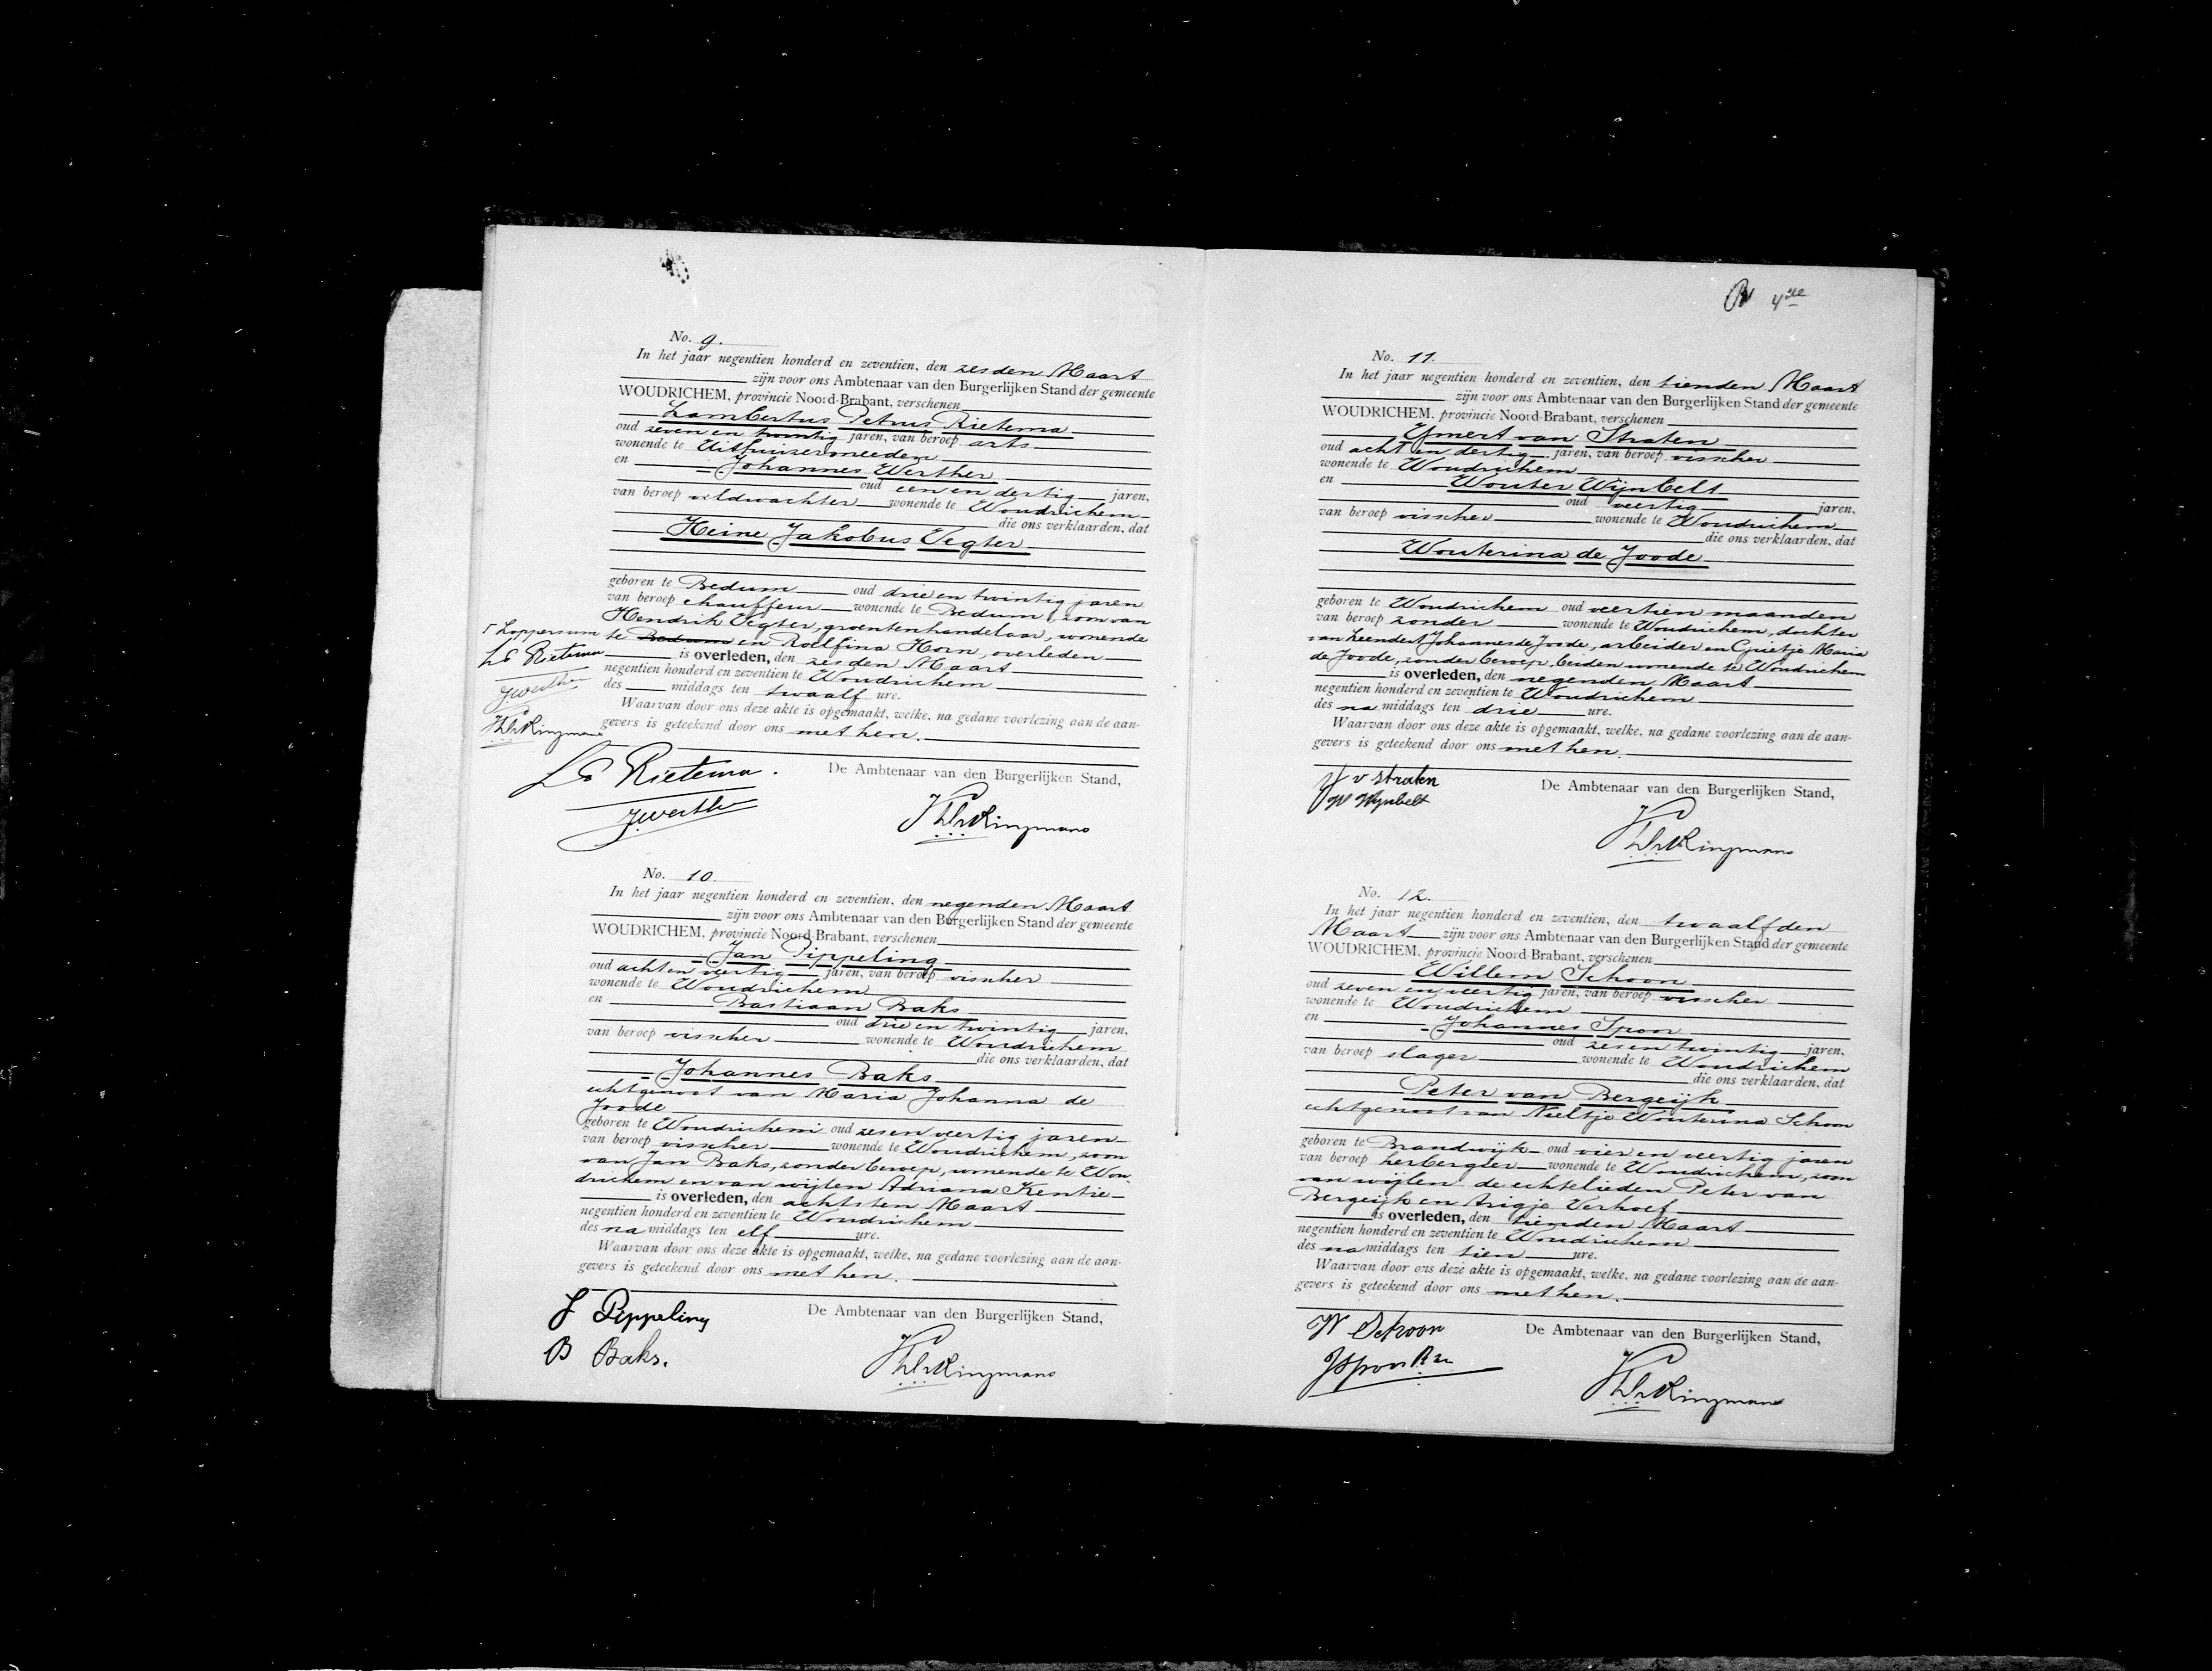 No. 9.
In het jaar negentien honderd en zeventien, den zesden Maart
zijn voor ons Ambtenaar van den Burgerlijken Stand der gemeente
WOUDRICHEM, provincie Noord-Brabant, verschenen
Lambertus Petrus Rietema
oud zeven en twintig jaren, van beroep arts
wonende te Uithuizermeeden
en Johannes Werther
oud een en dertig jaren,
van beroep veldwachter wonende te Woudrichem
die ons verklaarden, dat
Heine Jakobus Vegter
geboren te Bedum oud drie en twintig jaren
van beroep chauffeur wonende te Bedum, zoon van
Hendrik Vegter, groentenhandelaar, wonende
te Bedum en Roelfina Horn, overleden
is overleden, den zesden Maart
negentien honderd en zeventien te Woudrichem
des middags ten twaalf ure.
Waarvan door ons deze akte is opgemaakt, welke, na gedane voorlezing aan de aan-
gevers is geteekend door ons met hen.
Loppersum
L P Rietema
J Werther
L P Rietema.
De Ambtenaar van den Burgerlijken Stand,
J Werther
No. 10.
In het jaar negentien honderd en zeventien, den negenden Maart
zijn voor ons Ambtenaar van den Burgerlijken Stand der gemeente
WOUDRICHEM, provincie Noord-Brabant, verschenen
Jan Pippeling
oud acht en veertig jaren, van beroep visscher
wonende te Woudrichem
en Bastiaan Baks
oud drie en twintig jaren,
van beroep visscher wonende te Woudrichem
die ons verklaarden, dat
Johannes Baks
echtgenoot van Maria Johanna de
Joode
geboren te Woudrichem oud zes en veertig jaren
van beroep visscher wonende te Woudrichem, zoon
van Jan Baks, zonder beroep, wonende te Wou-
drichem en van wijlen Adriana Kentie
is overleden, den achtsten Maart
negentien honderd en zeventien te Woudrichem
des na middags ten elf ure.
Waarvan door ons deze akte is opgemaakt, welke, na gedane voorlezing aan de aan-
gevers is geteekend door ons met hen.
J Pippeling
De Ambtenaar van den Burgerlijken Stand,
B Baks.
4de
No. 11.
In het jaar negentien honderd en zeventien, den tienden Maart
zijn voor ons Ambtenaar van den Burgerlijken Stand der gemeente
WOUDRICHEM, provincie Noord-Brabant, verschenen
IJmert van Straten
oud acht en dertig jaren, van beroep visscher
wonende te Woudrichem
en Wouter Wijnbelt
oud veertig jaren,
van beroep visscher wonende te Woudrichem
die ons verklaarden, dat
Wouterina de Joode
geboren te Woudrichem oud veertien maanden
van beroep zonder wonende te Woudrichem, dochter
van Leendert Johannes de Joode, arbeider en Grietje Maria
de Joode, zonder beroep, beiden wonende te Woudrichem
is overleden, den negenden Maart
negentien honderd en zeventien te Woudrichem
des na middags ten drie ure.
Waarvan door ons deze akte is opgemaakt, welke, na gedane voorlezing aan de aan-
gevers is geteekend door ons met hen.
IJ v Straten
De Ambtenaar van den Burgerlijken Stand,
W Wijnbelt
No. 12.
In het jaar negentien honderd en zeventien, den twaalfden
Maart zijn voor ons Ambtenaar van den Burgerlijken Stand der gemeente
WOUDRICHEM, provincie Noord-Brabant, verschenen
Willem Schoon
oud zeven en veertig jaren, van beroep visscher
wonende te Woudrichem
en Johannes Spoor
oud zes en twintig jaren,
van beroep slager wonende te Woudrichem
die ons verklaarden, dat
Peter van Bergeijk
echtgenoot van Neeltje Wouterina Schoon
geboren te Brandwijk oud vier en veertig jaren
van beroep herbergier wonende te Woudrichem, zoon
van wijlen de echtelieden Peter van
Bergeijk en Arigje Verhoef
is overleden, den tienden Maart
negentien honderd en zeventien te Woudrichem
des na middags ten tien ure.
Waarvan door ons deze akte is opgemaakt, welke, na gedane voorlezing aan de aan-
gevers is geteekend door ons met hen.
W Schoon
De Ambtenaar van den Burgerlijken Stand,
J Spoor